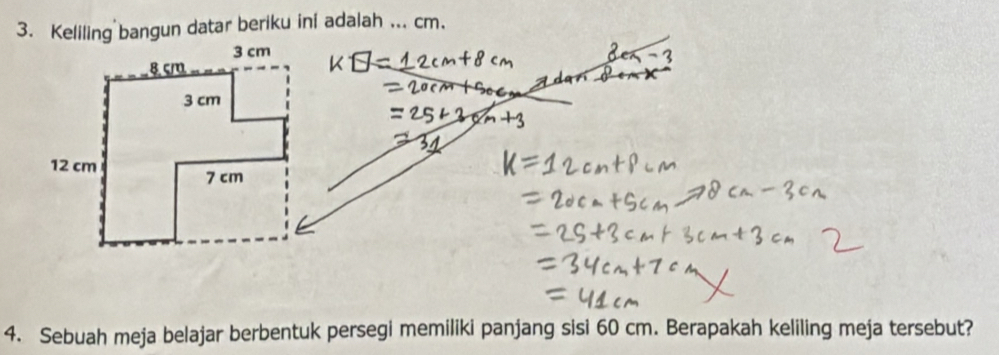 3. Keliling bangun datar beriku ini adalah ... cm.
3 cm
8 cm
3 cm
12 cm
7 cm
K = 12cm+8 cm
= 20cm+50cm
8cm - 3
dari 8cm x
= 25+3cm+3
= 31
K = 12cm+8cm
= 20cm+5cm → 8cm - 3cm
= 25+3cm+3cm+3cm
2
= 34cm+7cm
= 41cm
4. Sebuah meja belajar berbentuk persegi memiliki panjang sisi 60 cm. Berapakah keliling meja tersebut?